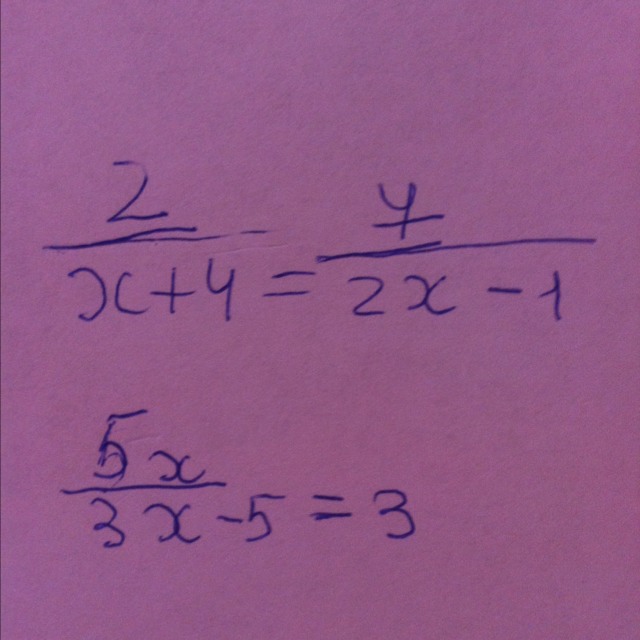 2/(x+4) = 4/(2x-1)
5x/(3x-5) = 3